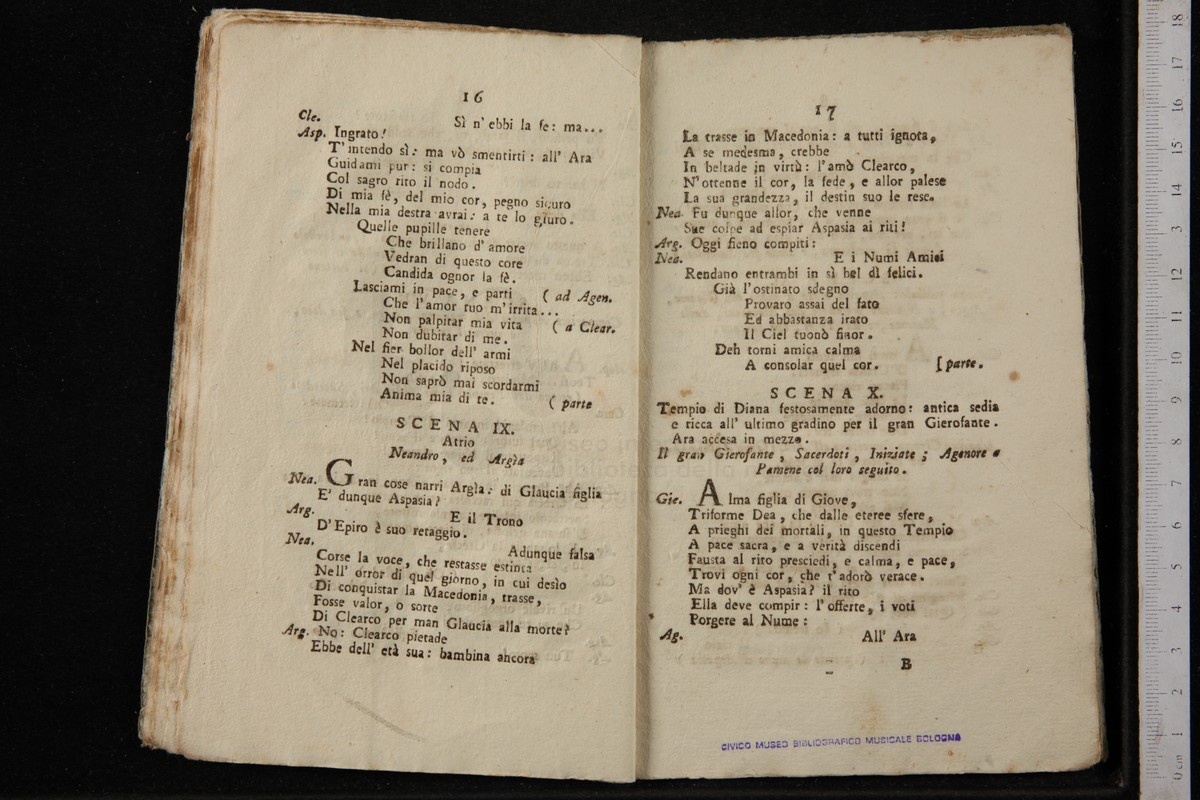 16
Cle. Sì n' ebbi la fe: ma...
Asp. Ingrato!
T' intendo sì: ma vò smentirti: all' Ara
Guidami pur: si compia
Col sagro rito il nodo.
Di mia fè, del mio cor, pegno sicuro
Nella mia destra avrai: a te lo giuro.
Quelle pupille tenere
Che brillano d' amore
Vedran di questo core
Candida ognor la fè.
Lasciami in pace, e parti ( ad Agen.
Che l' amor tuo m' irrita...
Non palpitar mia vita ( a Clear.
Non dubitar di me.
Nel fier bollor dell' armi
Nel placido riposo
Non saprò mai scordarmi
Anima mia di te. ( parte
SCENA IX.
Atrio
Neandro, ed Argìa
Nea. Gran cose narri Argìa: di Glaucia figlia
E' dunque Aspasia?
Arg. E il Trono
D' Epiro è suo retaggio.
Nea. Adunque falsa
Corse la voce, che restasse estinta
Nell' orror di quel giorno, in cui desìo
Di conquistar la Macedonia, trasse,
Fosse valor, o sorte
Di Clearco per man Glaucia alla morte?
Arg. No: Clearco pietade
Ebbe dell' età sua: bambina ancora
17
La trasse in Macedonia: a tutti ignota,
A se medesma, crebbe
In beltade in virtù: l' amò Clearco,
N' ottenne il cor, la fede, e allor palese
La sua grandezza, il destin suo le rese.
Nea. Fu dunque allor, che venne
Sue colpe ad espiar Aspasia ai riti!
Arg. Oggi fieno compiti:
Nea. E i Numi Amici
Rendano entrambi in sì bel dì felici.
Già l' ostinato sdegno
Provaro assai del fato
Ed abbastanza irato
Il Ciel tuonò finor.
Deh torni amica calma
A consolar quel cor. [ parte.
SCENA X.
Tempio di Diana festosamente adorno: antica sedia
e ricca all' ultimo gradino per il gran Gierofante.
Ara accesa in mezzo.
Il gran Gierofante, Sacerdoti, Iniziate; Agenore e
Pamene col loro seguito.
Gie. Alma figlia di Giove,
Triforme Dea, che dalle eteree sfere,
A prieghi dei mortali, in questo Tempio
A pace sacra, e a verità discendi
Fausta al rito presciedi, e calma, e pace,
Trovi ogni cor, che t' adorò verace.
Ma dov' è Aspasia? il rito
Ella deve compir: l' offerte, i voti
Porgere al Nume:
Ag. All' Ara
B
CIVICO MUSEO BIBLIOGRAFICO MUSICALE BOLOGNA